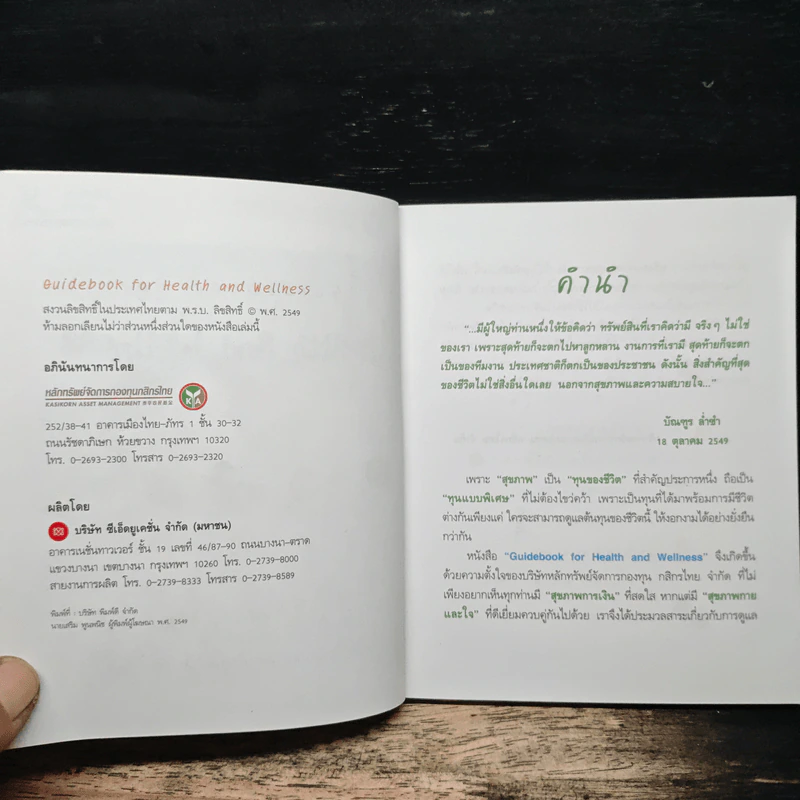 Guidebook for Health and Wellness
สงวนลิขสิทธิ์ในประเทศไทยตาม พ.ร.บ. ลิขสิทธิ์ © พ.ศ. 2549
ห้ามลอกเลียนไม่ว่าส่วนหนึ่งส่วนใดของหนังสือเล่มนี้
อภินันทนาการโดย
หลักทรัพย์จัดการกองทุนกสิกรไทย
KASIKORN ASSET MANAGEMENT
K A
252/38-41 อาคารเมืองไทย-ภัทร 1 ชั้น 30-32
ถนนรัชดาภิเษก ห้วยขวาง กรุงเทพฯ 10320
โทร. 0-2693-2300 โทรสาร 0-2693-2320
ผลิตโดย
บริษัท ซีเอ็ดยูเคชั่น จำกัด (มหาชน)
อาคารเนชั่นทาวเวอร์ ชั้น 19 เลขที่ 46/87-90 ถนนบางนา-ตราด
แขวงบางนา เขตบางนา กรุงเทพฯ 10260 โทร. 0-2739-8000
สายงานการผลิต โทร. 0-2739-8333 โทรสาร 0-2739-8589
พิมพ์ที่ : บริษัท พิมพ์ดี จำกัด
นายเสริม พูนพนิช ผู้พิมพ์ผู้โฆษณา พ.ศ. 2549
คำนำ
"...มีผู้ใหญ่ท่านหนึ่งให้ข้อคิดว่า ทรัพย์สินที่เราคิดว่ามี จริงๆ ไม่ใช่
ของเรา เพราะสุดท้ายก็จะตกไปหาลูกหลาน งานการที่เรามี สุดท้ายก็จะตก
เป็นของทีมงาน ประเทศชาติก็ตกเป็นของประชาชน ดังนั้น สิ่งสำคัญที่สุด
ของชีวิตไม่ใช่สิ่งอื่นใดเลย นอกจากสุขภาพและความสบายใจ..."
บัณฑูร ล่ำซำ
18 ตุลาคม 2549
เพราะ "สุขภาพ" เป็น "ทุนของชีวิต" ที่สำคัญประการหนึ่ง ถือเป็น
"ทุนแบบพิเศษ" ที่ไม่ต้องไขว่คว้า เพราะเป็นทุนที่ได้มาพร้อมการมีชีวิต
ต่างกันเพียงแค่ ใครจะสามารถดูแลต้นทุนของชีวิตนี้ ให้งอกงามได้อย่างยั่งยืน
กว่ากัน
หนังสือ "Guidebook for Health and Wellness" จึงเกิดขึ้น
ด้วยความตั้งใจของบริษัทหลักทรัพย์จัดการกองทุน กสิกรไทย จำกัด ที่ไม่
เพียงอยากเห็นทุกท่านมี "สุขภาพการเงิน" ที่สดใส หากแต่มี "สุขภาพกาย
และใจ" ที่ดีเยี่ยมควบคู่กันไปด้วย เราจึงได้ประมวลสาระเกี่ยวกับการดูแล